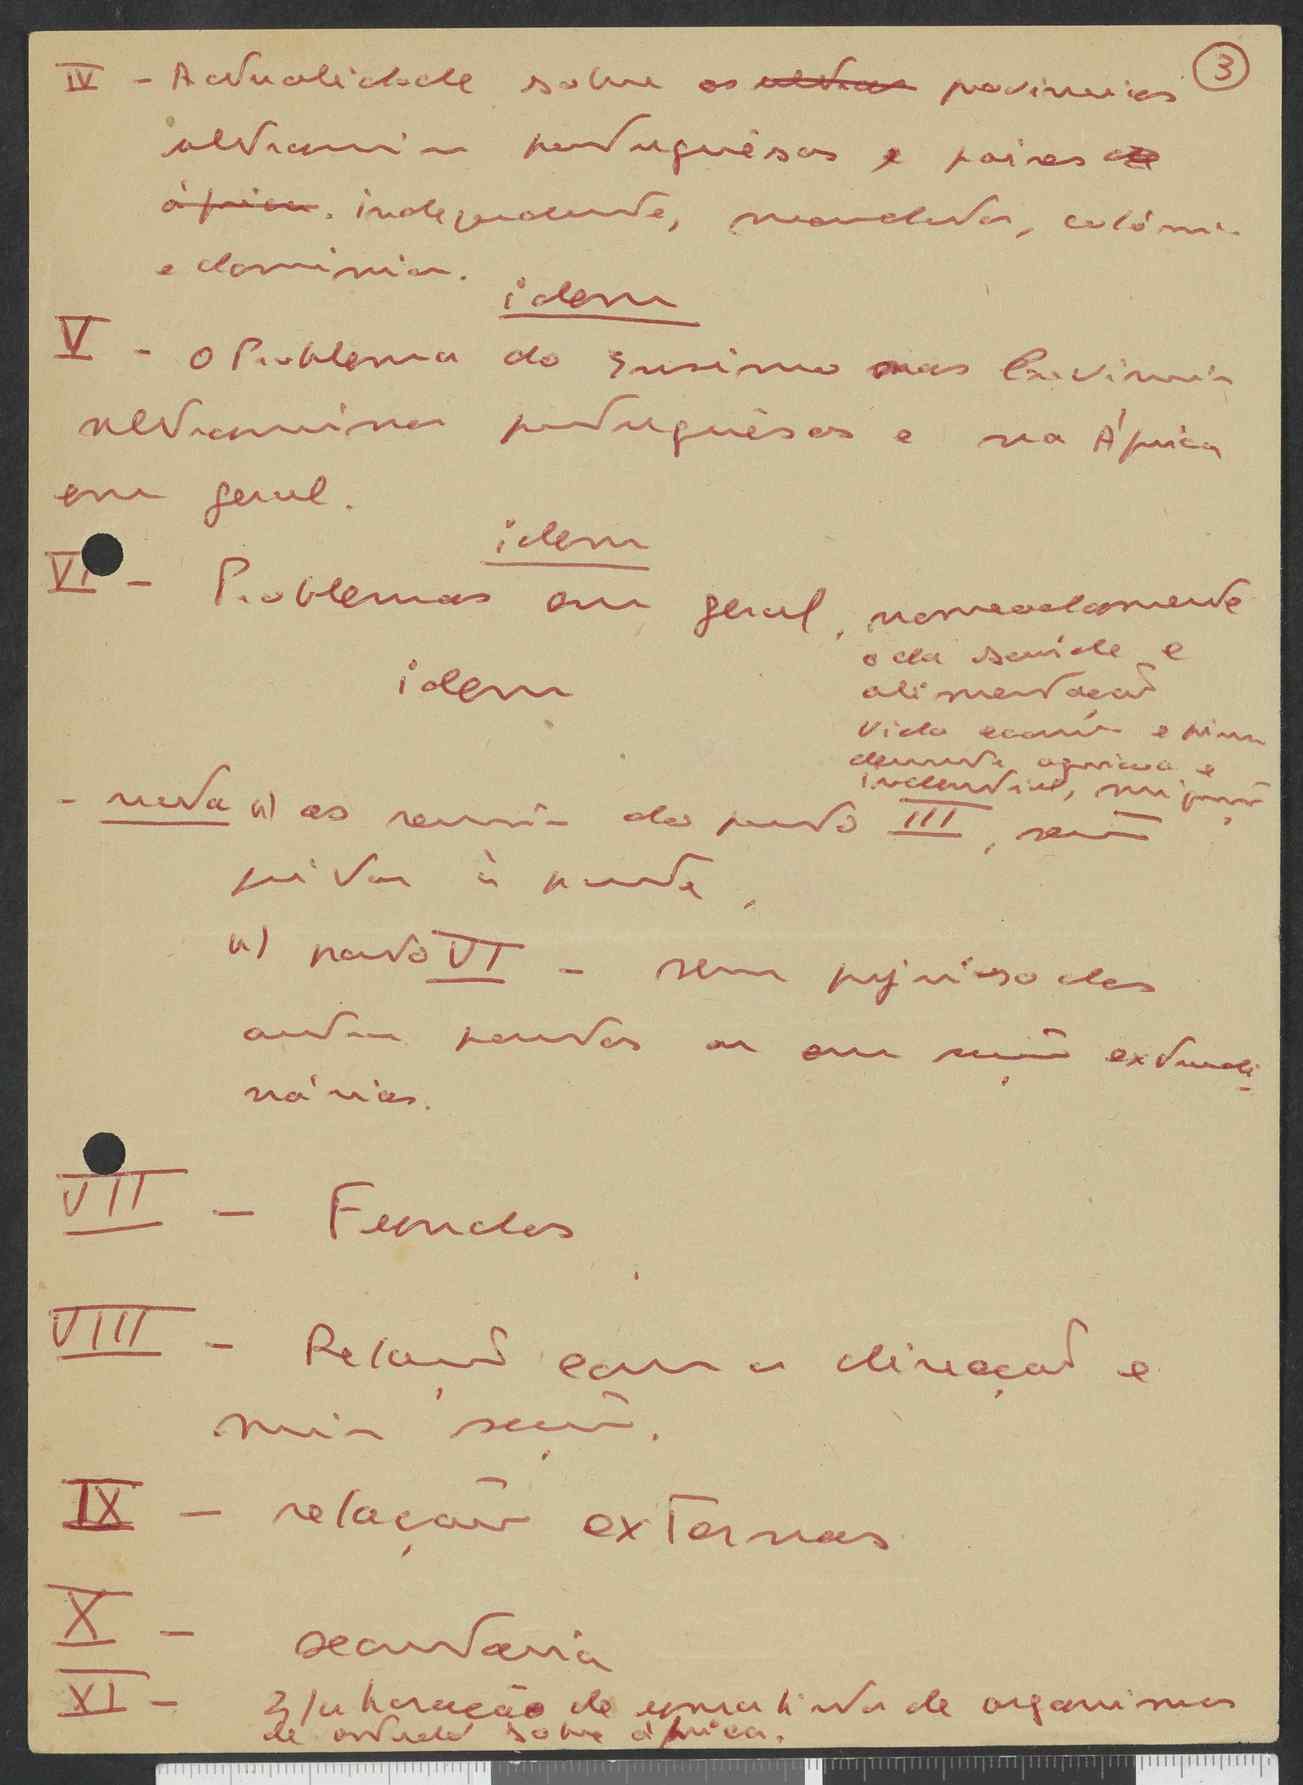 3
IV - Actualidade sobre as províncias
ultramarinas portuguêsas e países de
áfrica. independentes, mandatos, colónias
e dominios.
idem
V - O Problema do Ensino nas Províncias
ultramarinas portuguêsas e na África
em geral.
idem
VI - Problemas em geral, nomeadamente
o da saúde e
idem
alimentação
vida económ e
agricola e
industrial,
- nota a) as reuniões do ponto III, serão
feitas à parte,
b) ponto VI - sem prejuiso dos
outros pontos ou em reuniões extraordi-
nárias.
VII - Fundos
VIII - Relações com a direcção e
mais secções.
IX - relações externas
X - secretaria
XI - Elaboração de uma lista de organismos
de estudo sobre áfrica.